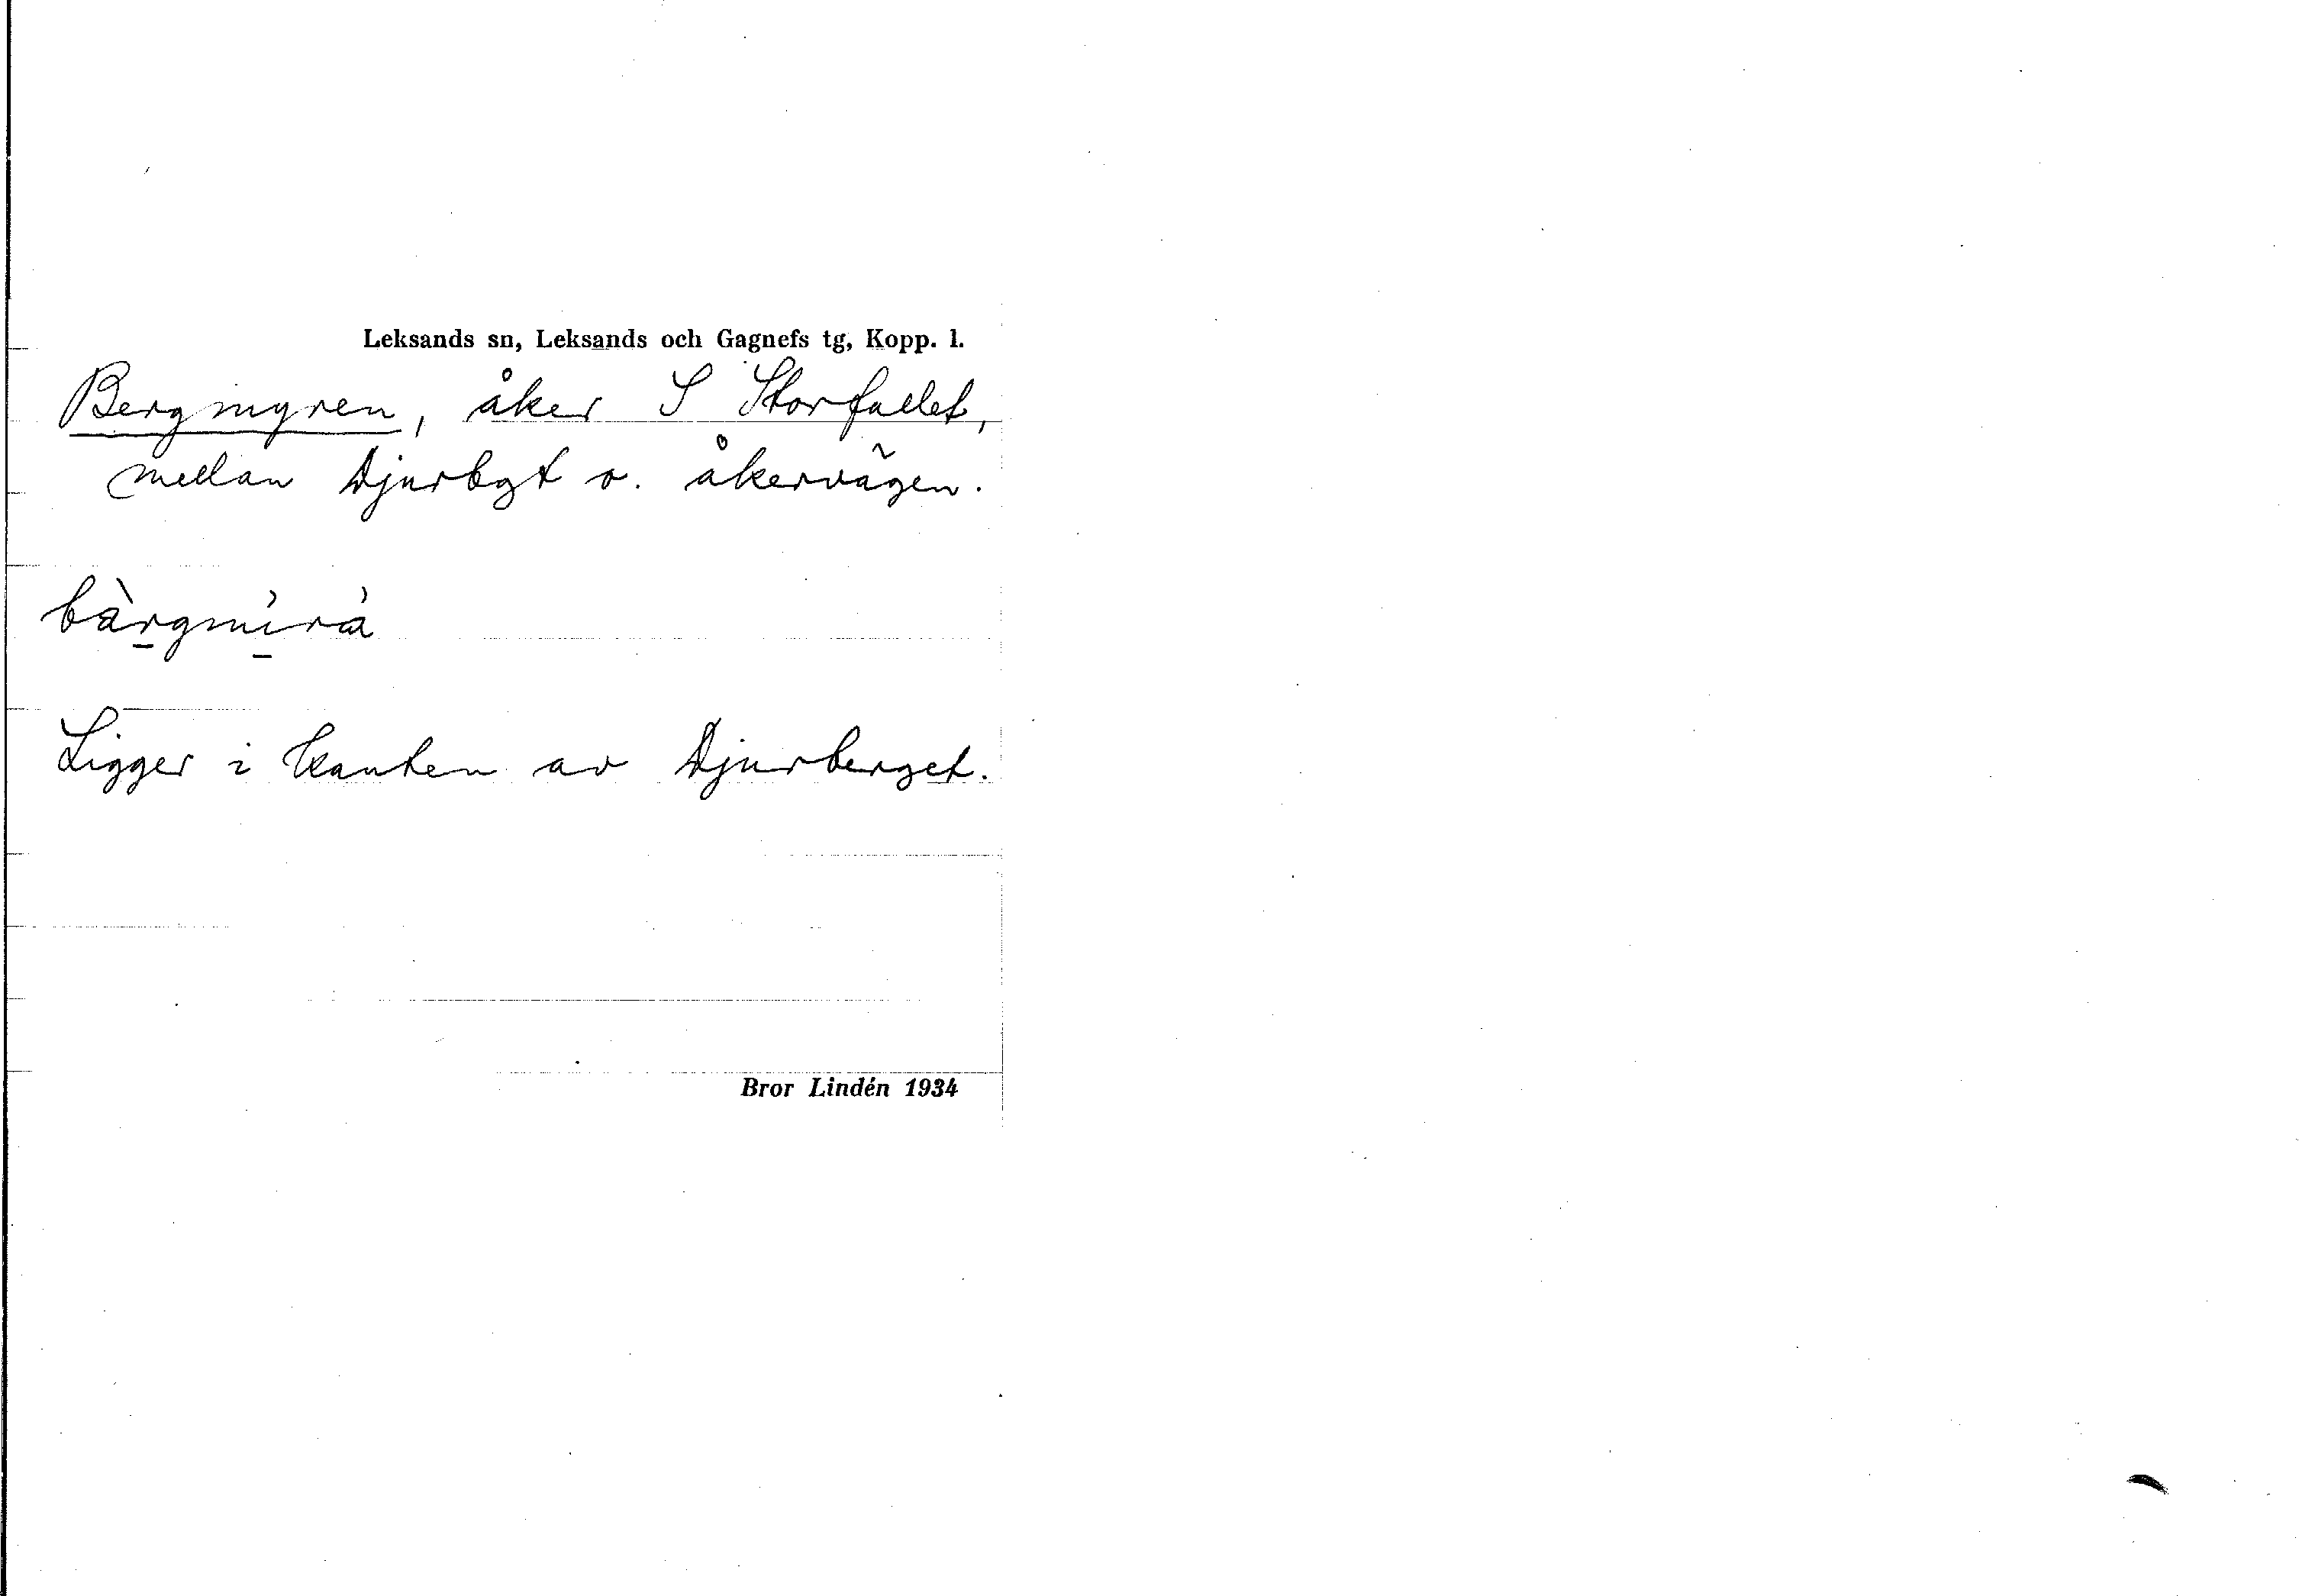 Leksands sn, Leksands och Gagnefs tg, Kopp. l.
Bergmyren, åker S Storfallet,
mellan Djurbgt o. åkervägen.
bàrgmirà
Ligger i kanten av Djurberget.
Bror Lindén 1934